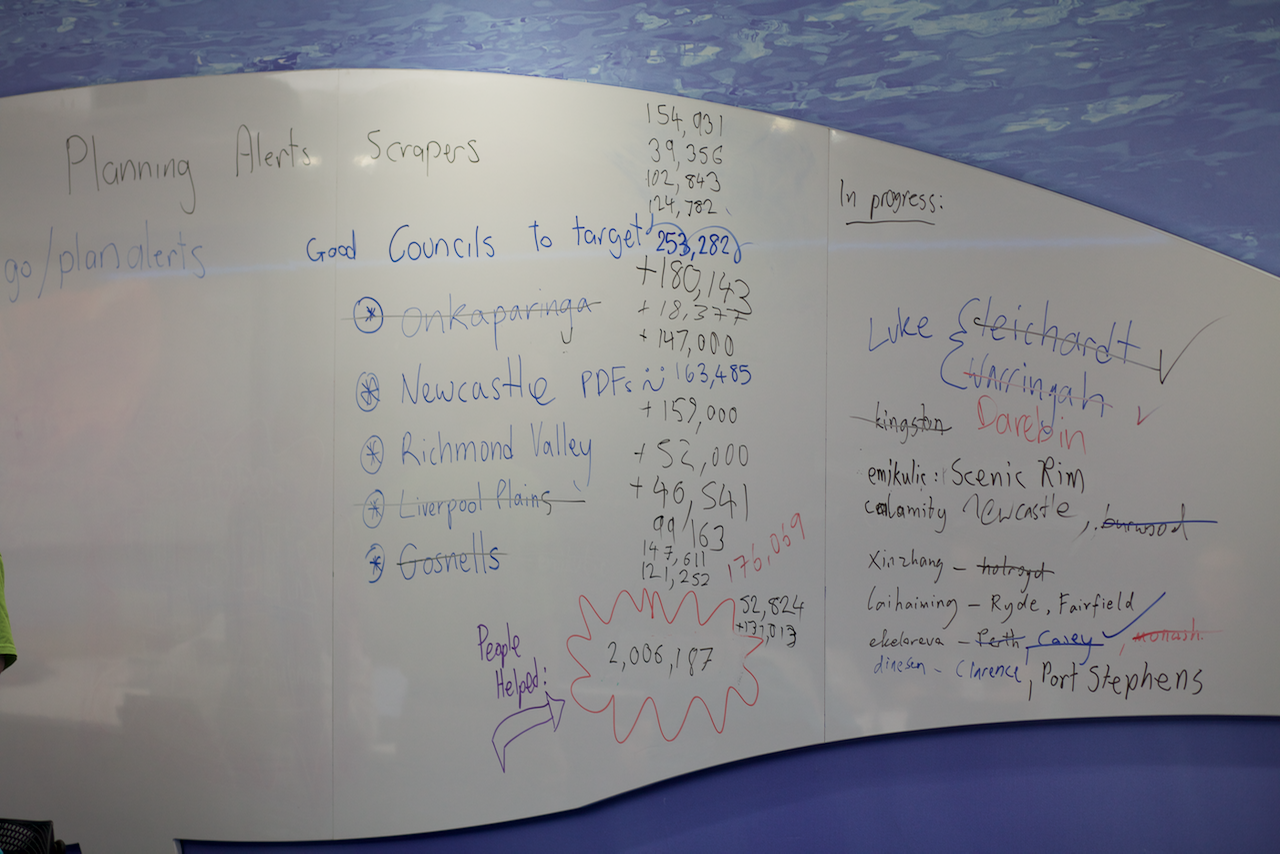 Planning Alerts Scrapers
go/planalerts
154,931
39,356
102,843
124,782
Good Councils to target!
253,282
+180,143
+18,377
+147,000
163,485
+159,000
+52,000
+46,541
99,163
147,611
121,252
176,069
52,824
+137,013
Onkaparinga
Newcastle PDFs
Richmond Valley
Liverpool Plains
Gosnells
People
Helped:
2,006,187
In progress:
Luke { Leichardt ✓
{ Warringah ✓
kingston Darebin
emikulic: Scenic Rim
calamity Newcastle, burwood
Xinzhang - holroyd
laihaiming - Ryde, Fairfield
ekelareva - Perth, Casey ✓, monash
dinesan - Clarence, Port Stephens